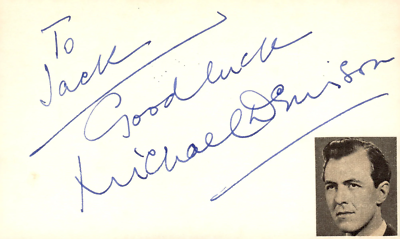 To
Jack
Good luck
Michael Denison